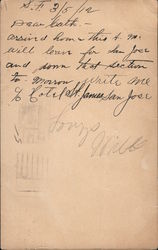 S.F. 3/5/12
Dear Cath –
arrived home this A.M.
will leave for San Jose
and down that section
to morrow write me
c/o Hotel St James San Jose
Will